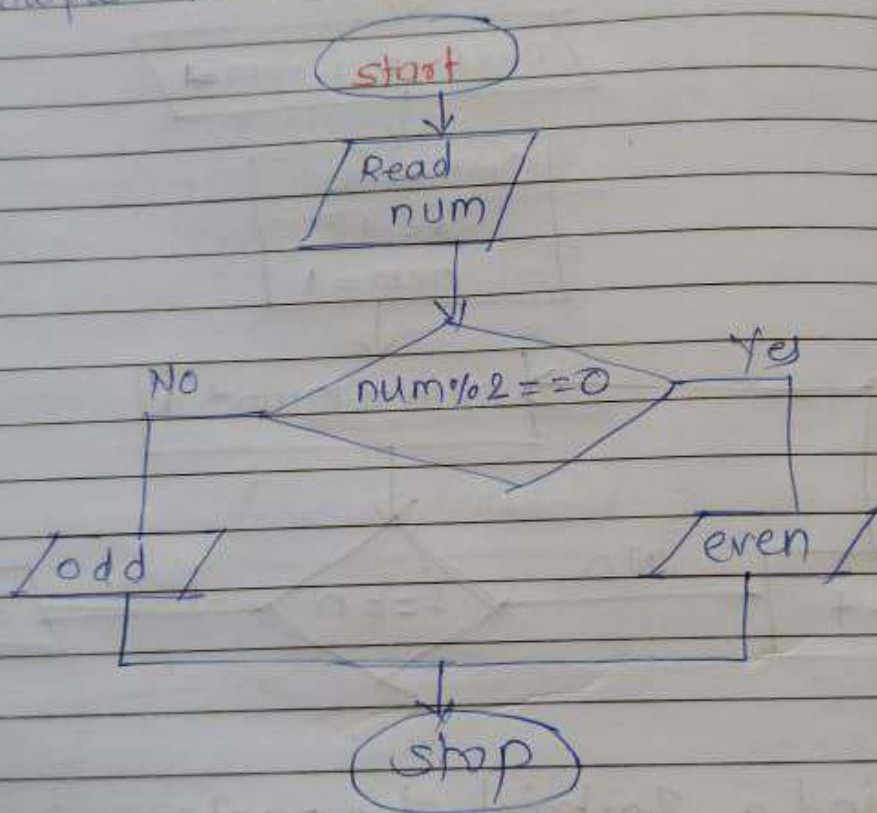 start
Read
num
num%2==0
No
Yes
odd
even
stop